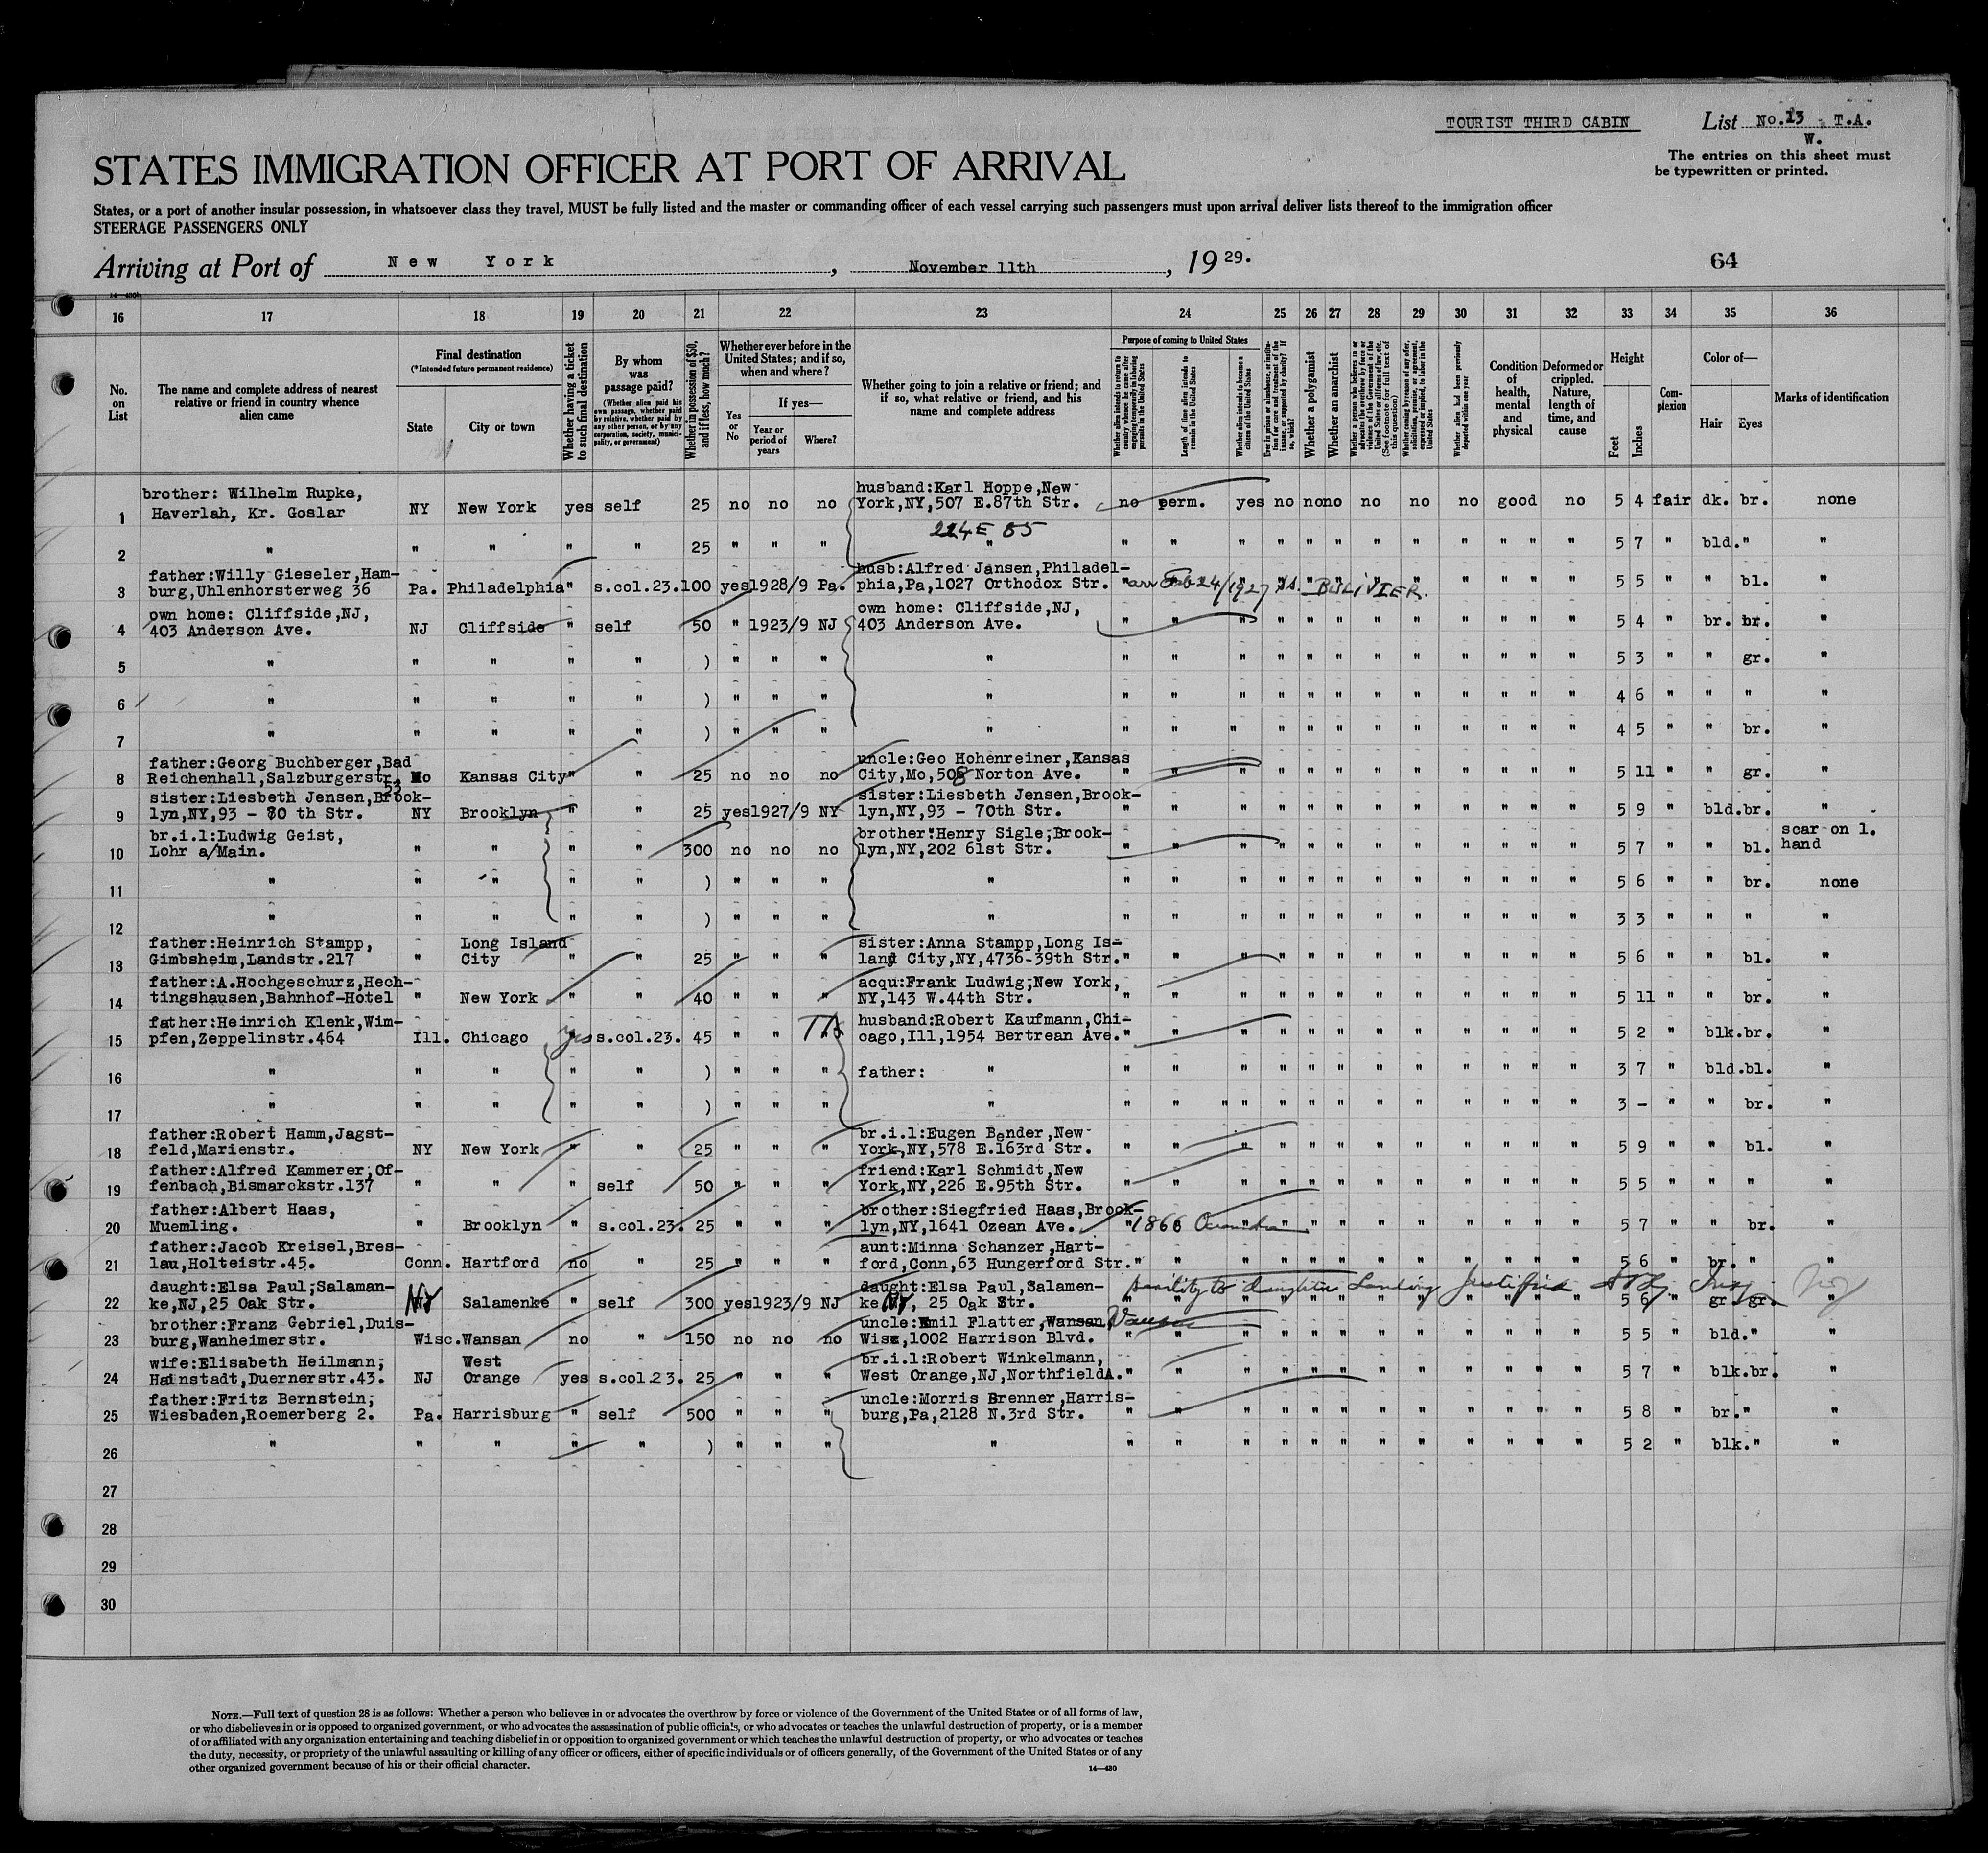 TOURIST THIRD CABIN
List No.13 T.A.
W.
The entries on this sheet must
be typewritten or printed.
STATES IMMIGRATION OFFICER AT PORT OF ARRIVAL
States, or a port of another insular possession, in whatsoever class they travel, MUST be fully listed and the master or commanding officer of each vessel carrying such passengers must upon arrival deliver lists thereof to the immigration officer
STEERAGE PASSENGERS ONLY
Arriving at Port of New York, November 11th, 1929.
64
16 17 18 19 20 21 22 23 24 25 26 27 28 29 30 31 32 33 34 35 36
No. on List
The name and complete address of nearest relative or friend in country whence alien came
Final destination
(*Intended future permanent residence)
State
City or town
Whether having a ticket to such final destination
By whom was passage paid?
(Whether alien paid his own passage, whether paid by relative, whether paid by any other person, or by any corporation, society, municipality, or government)
Whether in possession of $50, and if less, how much?
Whether ever before in the United States; and if so, when and where?
Yes or No
If yes—
Year or period of years
Where?
Whether going to join a relative or friend; and if so, what relative or friend, and his name and complete address
Purpose of coming to United States
Length of time alien intends to remain in the United States
Whether alien intends to become a citizen of the United States
Whether a polygamist
Whether an anarchist
Whether alien had been previously deported within one year
Condition of health, mental and physical
Deformed or crippled. Nature, length of time, and cause
Height
Feet
Inches
Complexion
Color of—
Hair
Eyes
Marks of identification
1 brother: Wilhelm Rupke, Haverlah, Kr. Goslar NY New York yes self 25 no no no husband:Karl Hoppe,New York,NY,507 E.87th Str. no perm. yes no no no no no no good no 5 4 fair dk. br. none
224 E 85
2 " " " " " 25 " " " " " " " " " " " " " " " 5 7 " bld. " "
3 father:Willy Gieseler,Hamburg,Uhlenhorsterweg 36 Pa. Philadelphia " s.col.23. 100 yes 1928/9 Pa. husb:Alfred Jansen,Philadelphia,Pa,1027 Orthodox Str. " arr Feb 24/1927 SS. BOLIVIER. 5 5 " " bl. "
4 own home: Cliffside,NJ, 403 Anderson Ave. NJ Cliffside " self 50 " 1923/9 NJ own home: Cliffside,NJ, 403 Anderson Ave. " " " " " " " " " " " 5 4 " br. br. "
5 " " " " " ) " " " " " " " " " " " " " " " 5 3 " " gr. "
6 " " " " " ) " " " " " " " " " " " " " " " 4 6 " " " "
7 " " " " " ) " " " " " " " " " " " " " " " 4 5 " " br. "
8 father:Georg Buchberger,Bad Reichenhall,Salzburgerstr. 53 Mo Kansas City " " 25 no no no uncle:Geo Hohenreiner,Kansas City,Mo,508 Norton Ave. " " " " " " " " " " " 5 11 " " gr. "
9 sister:Liesbeth Jensen,Brooklyn,NY,93 - 70 th Str. NY Brooklyn " " 25 yes 1927/9 NY sister:Liesbeth Jensen,Brooklyn,NY,93 - 70th Str. " " " " " " " " " " " 5 9 " bld. br. "
10 br.i.l:Ludwig Geist, Lohr a/Main. " " " " 300 no no no brother:Henry Sigle;Brooklyn,NY,202 61st Str. " " " " " " " " " " " 5 7 " " bl. scar on l. hand
11 " " " " " ) " " " " " " " " " " " " " " " 5 6 " " br. none
12 " " " " " ) " " " " " " " " " " " " " " " 3 3 " " " "
13 father:Heinrich Stampp, Gimbsheim,Landstr.217 " Long Island City " " 25 " " " sister:Anna Stampp,Long Island City,NY,4736-39th Str. " " " " " " " " " " " 5 6 " " bl. "
14 father:A.Hochgeschurz,Hechtingshausen,Bahnhof-Hotel " New York " " 40 " " " acqu:Frank Ludwig;New York, NY,143 W.44th Str. " " " " " " " " " " " 5 11 " " br. "
15 father:Heinrich Klenk,Wimpfen,Zeppelinstr.464 Ill. Chicago yes s.col.23. 45 " " " husband:Robert Kaufmann,Chicago,Ill,1954 Bertrean Ave. " " " " " " " " " " " 5 2 " blk. br. "
16 " " " " " ) " " " father: " " " " " " " " " " " " 3 7 " bld. bl. "
17 " " " " " ) " " " " " " " " " " " " " " " 3 - " " br. "
18 father:Robert Hamm,Jagstfeld,Marienstr. NY New York " " 25 " " " br.i.l:Eugen Bender,New York,NY,578 E.163rd Str. " " " " " " " " " " " 5 9 " " bl. "
19 father:Alfred Kammerer;Offenbach,Bismarckstr.137 " " " self 50 " " " friend:Karl Schmidt,New York,NY,226 E.95th Str. " " " " " " " " " " " 5 5 " " " "
20 father:Albert Haas, Muemling. " Brooklyn " s.col.23. 25 " " " brother:Siegfried Haas,Brooklyn,NY,1641 Ozean Ave. " 1866 " " " " " " " " " 5 7 " " br. "
21 father:Jacob Kreisel,Breslau,Holteistr.45. Conn. Hartford no " 25 " " " aunt:Minna Schanzer,Hartford,Conn,63 Hungerford Str. " " " " " " " " " " " 5 6 " br. " "
22 daught:Elsa Paul;Salamanke,NJ,25 Oak Str. NY Salamenke " self 300 yes 1923/9 NJ daught:Elsa Paul,Salamenke NY, 25 Oak Str. to daughter Landing Justified 5 6 gr. gr. "
23 brother:Franz Gebriel,Duisburg,Wanheimerstr. Wisc. Wansan no " 150 no no no uncle:Emil Flatter,Wansan, Wausau Wisc,1002 Harrison Blvd. " " " " " " " " " " " 5 5 " bld. " "
24 wife:Elisabeth Heilmann; Hainstadt,Duernerstr.43. NJ West Orange yes s.col.23. 25 " " " br.i.l:Robert Winkelmann, West Orange,NJ,NorthfieldA. " " " " " " " " " " " 5 7 " blk. br. "
25 father:Fritz Bernstein; Wiesbaden,Roemerberg 2. Pa. Harrisburg " self 500 " " " uncle:Morris Brenner,Harrisburg,Pa,2128 N.3rd Str. " " " " " " " " " " " 5 8 " br. " "
26 " " " " " ) " " " " " " " " " " " " " " " 5 2 " blk. " "
27
28
29
30
NOTE.—Full text of question 28 is as follows: Whether a person who believes in or advocates the overthrow by force or violence of the Government of the United States or of all forms of law,
or who disbelieves in or is opposed to organized government, or who advocates the assassination of public officials, or who advocates or teaches the unlawful destruction of property, or is a member
of or affiliated with any organization entertaining and teaching disbelief in or opposition to organized government or which teaches the unlawful destruction of property, or who advocates or teaches
the duty, necessity, or propriety of the unlawful assaulting or killing of any officer or officers, either of specific individuals or of officers generally, of the Government of the United States or of any
other organized government because of his or their official character.
14—430